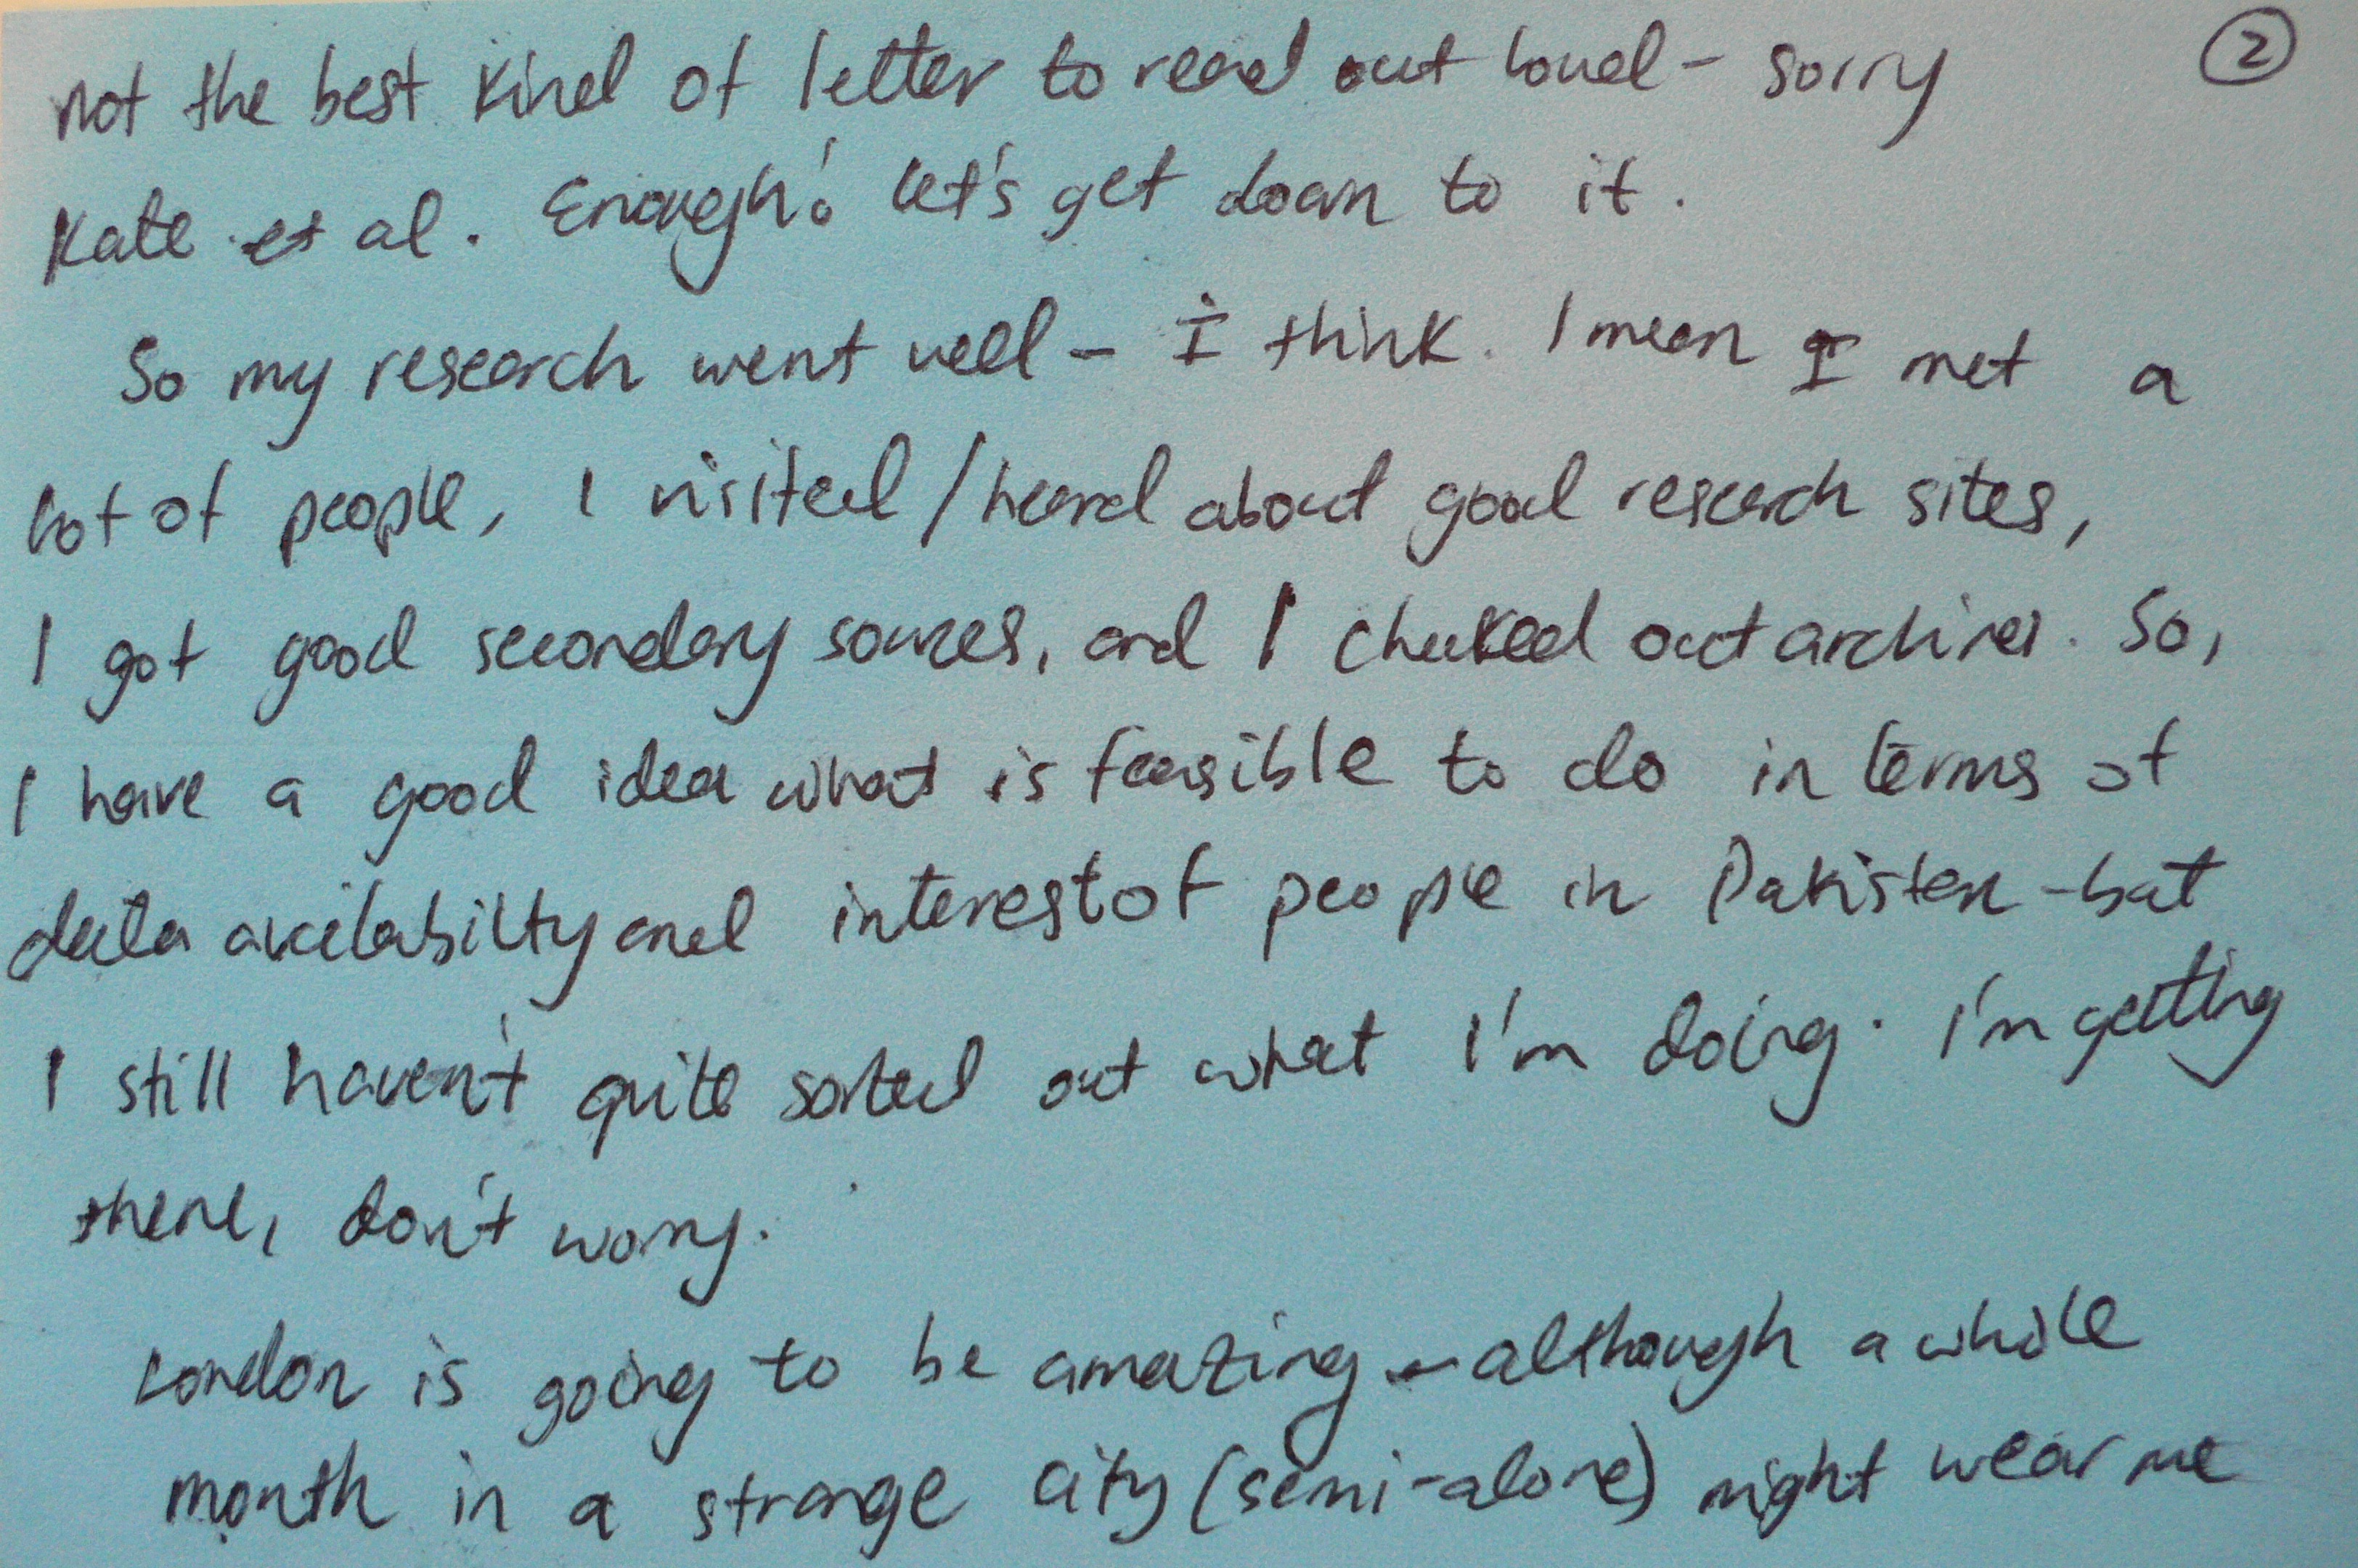 ②
not the best kind of letter to read out loud - sorry
Kate et al. Enough! Let's get down to it.
So my research went well - I think. I mean I met a
lot of people, I visited/heard about good research sites,
I got good secondary sources, and I checked out archives. So,
I have a good idea what is feasible to do in terms of
data availabilty and interest of people in Pakistan - but
I still haven't quite sorted out what I'm doing. I'm getting
there, don't worry.
London is going to be amazing - although a whole
month in a strange city (semi-alone) might wear me